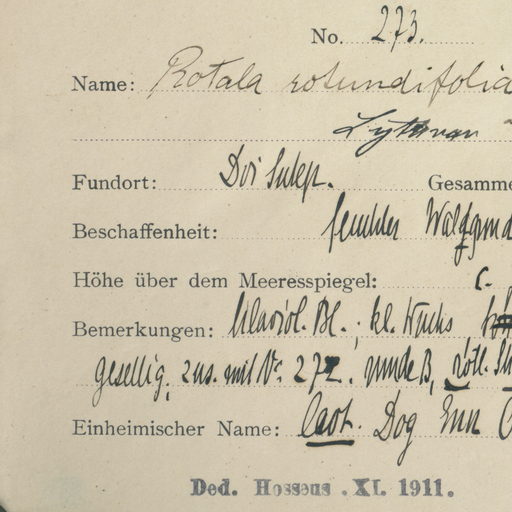 No. 273.
Name: Rotala rotundifolia
Fundort: Doi Sutep. Gesamme
Beschaffenheit: feuchter Waldgrund
Höhe über dem Meeresspiegel: c.
Bemerkungen: lilaviol. Bl.; kl. Wuchs
gesellig, zus. mit Nr. 272. runde B, rötl.
Einheimischer Name: Laot. Dog
Ded. Hosseus .XI. 1911.